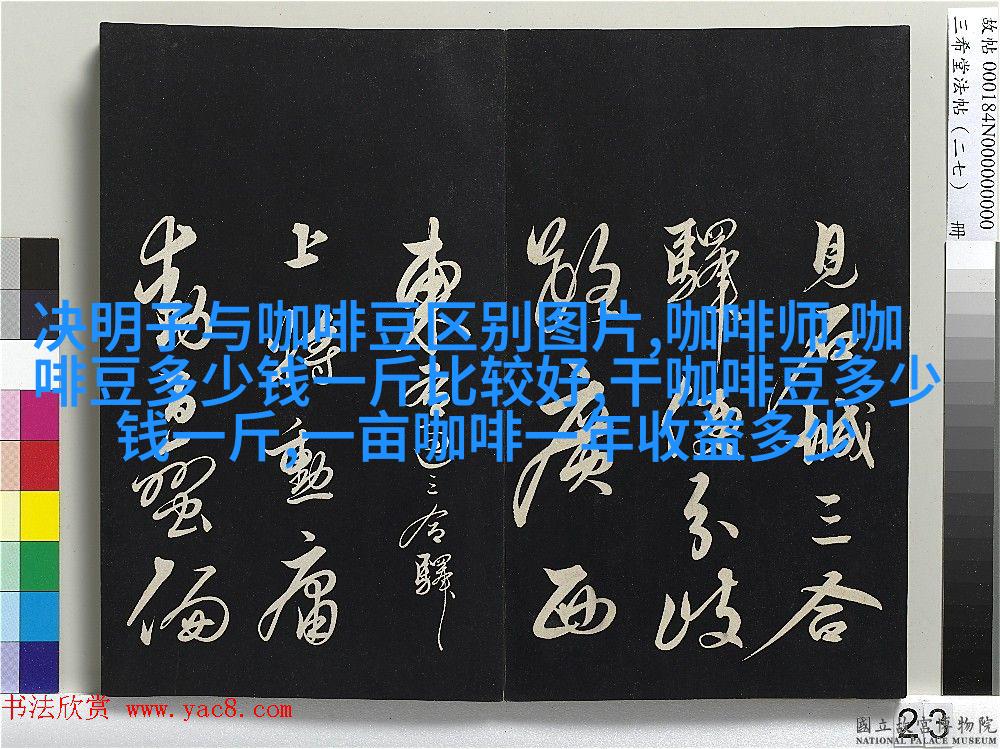 故帖000184N000000000
三希堂法帖(二七) 冊
見石城三合
驛
分岐
散廣西
東
三合驛
上時勳庸
决明子与咖啡豆区别图片,咖啡师,咖
啡豆多少钱一斤比较好,干咖啡豆多少
钱一斤,一亩咖啡一年收益多少
书法欣赏 www.yac8.com
23
國立故宮博物院
NATIONAL PALACE MUSEUM